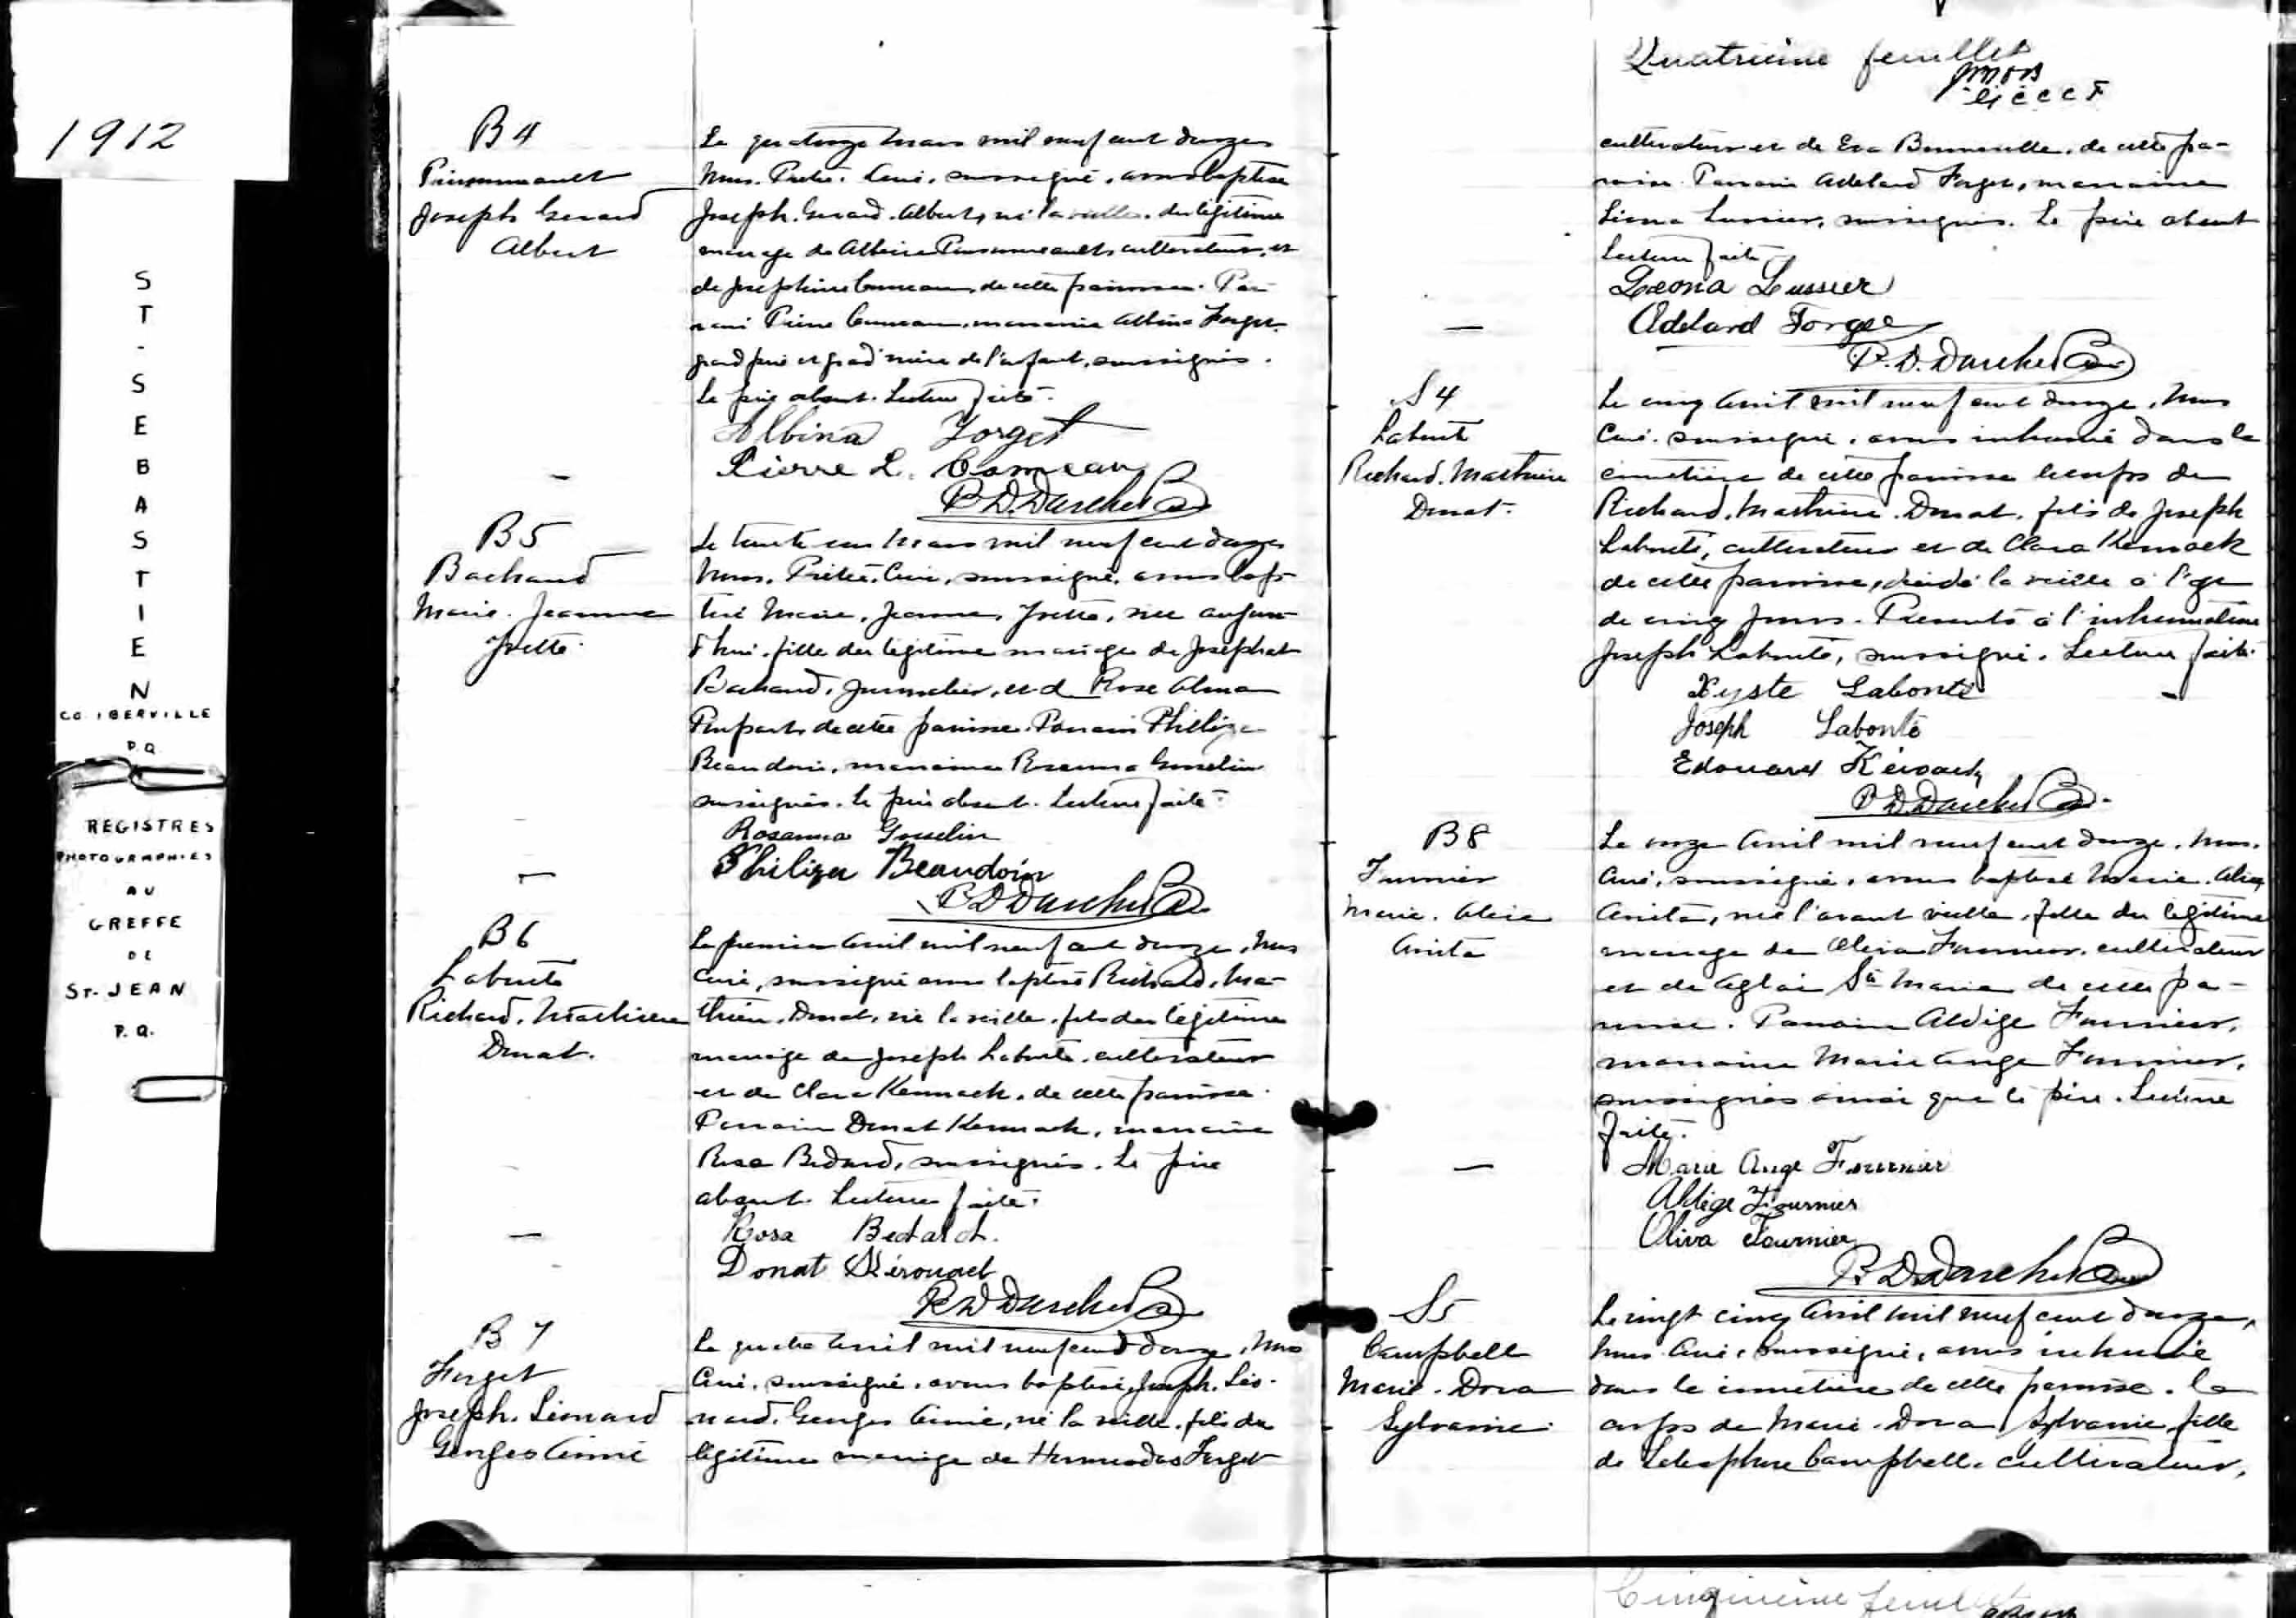 1912
ST-SEBASTIEN
CO. IBERVILLE
P.Q.
REGISTRES
PHOTOGRAPHIES
AU
GREFFE
DE
ST-JEAN
P.Q.
B4
Joseph Gerard
Albert
Le quatorze Mars mil neuf cent douze
Nous, Prêtre, Curé, soussigné, avons baptisé
Joseph. Gerard. Albert, né la veille, du légitime
mariage de cultivateur, et
de Josephine Comeau, de cette paroisse. Par-
rain Pierre Comeau, marraine Albina Forget
grand père et grand'mère de l'enfant, soussignés.
Le père absent. Lecture faite.
Albina Forget
Pierre L. Comeau
B5
Bachand
Marie. Jeanne
Yvette.
Le trente un Mars mil neuf cent douze
Nous, Prêtre, Curé, soussigné, avons bap-
tisé Marie, Jeanne, Yvette, née aujour-
d'hui, fille du légitime mariage de Josephat
Bachand, journalier, et d Rose Alma
de cette paroisse. Parrain Philiza
Beaudoin, marraine Rosanna Gosselin
soussignés. Le père absent. Lecture faite.
Rosanna Gosselin
Philiza Beaudoin
B6
Labonté
Richard. Mathieu
Donat.
Le premier Avril mil neuf cent douze, Nous
Curé, soussigné avons baptisé Richard, Ma-
thieu. Donat, né la veille, fils du légitime
mariage de Joseph Labonté, cultivateur
et de Clara Kerouack, de cette paroisse.
Parrain Donat Kerouack, marraine
Rosa Bedard, soussignés. Le père
absent. Lecture faite.
Rosa Bedard.
Donat Kérouack
B7
Forget
Joseph. Léonard
Georges Aimé
Le quatre Avril mil neuf cent douze, Nous
Curé, soussigné, avons baptisé Joseph. Léo-
nard. Georges Aimé, né la veille, fils du
légitime mariage de Hermisdas Forget
Quatrième feuillet
cultivateur et de Eva de cette pa-
roisse. Parrain Adelard Forget, marraine
Léona Lussier, soussignés. Le père absent
Lecture faite
Léona Lussier
Adelard Forget
S4
Labonté
Richard. Mathieu
Donat.
Le cinq Avril mil neuf cent douze, Nous
Curé, soussigné, avons inhumé dans le
cimetière de cette paroisse le corps de
Richard. Mathieu. Donat, fils de Joseph
Labonté, cultivateur et de Clara Kerouack
de cette paroisse, décédé la veille à l'age
de cinq jours. Presents à l'inhumation
Joseph Labonté, soussigné. Lecture faite.
Xyste Labonté
Joseph Labonté
Edouard Kérouack
B8
Fournier
Marie. Alice
Anita
Le onze Avril mil neuf cent douze, Nous,
Curé, soussigné, avons baptisé Marie. Alice
Anita, née l'avant veille, fille du légitime
mariage de Oliva Fournier, cultivateur
et de Aglaé Ste Marie de cette pa-
roisse. Parrain Aldige Fournier,
marraine Marie Ange Fournier,
soussignés ainsi que le père. Lecture
faite.
Marie Ange Fournier
Aldége Fournier
Oliva Fournier
S5
Campbell
Marie. Dora
Sylvanie
Le vingt cinq Avril mil neuf cent douze,
Nous Curé, soussigné, avons inhumé
dans le cimetière de cette paroisse, le
corps de Marie. Dora Sylvanie, fille
de Telesphore Campbell, cultivateur,
Cinquième feuillet